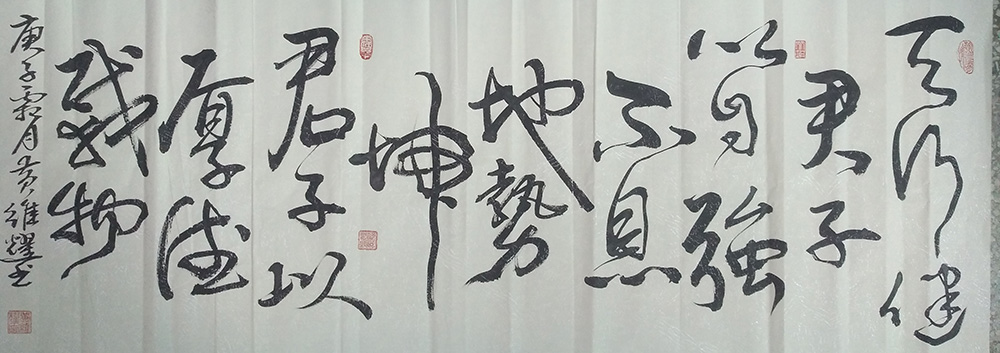 天行健
君子
以自強
不息
地勢
坤
君子以
厚德
載物
庚子霜月黄維耀书